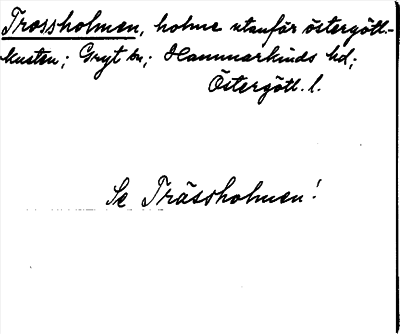 Trossholmen, holme utanför östergötl.-
kusten; Gryt sn; Hammarkinds hd;
Östergötl. l.
Se Trässholmen!